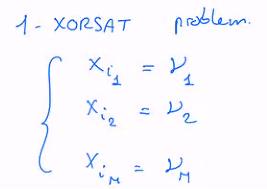 1- XORSAT problem.
x_{i_1} = ν_1
x_{i_2} = ν_2
x_{i_M} = ν_M